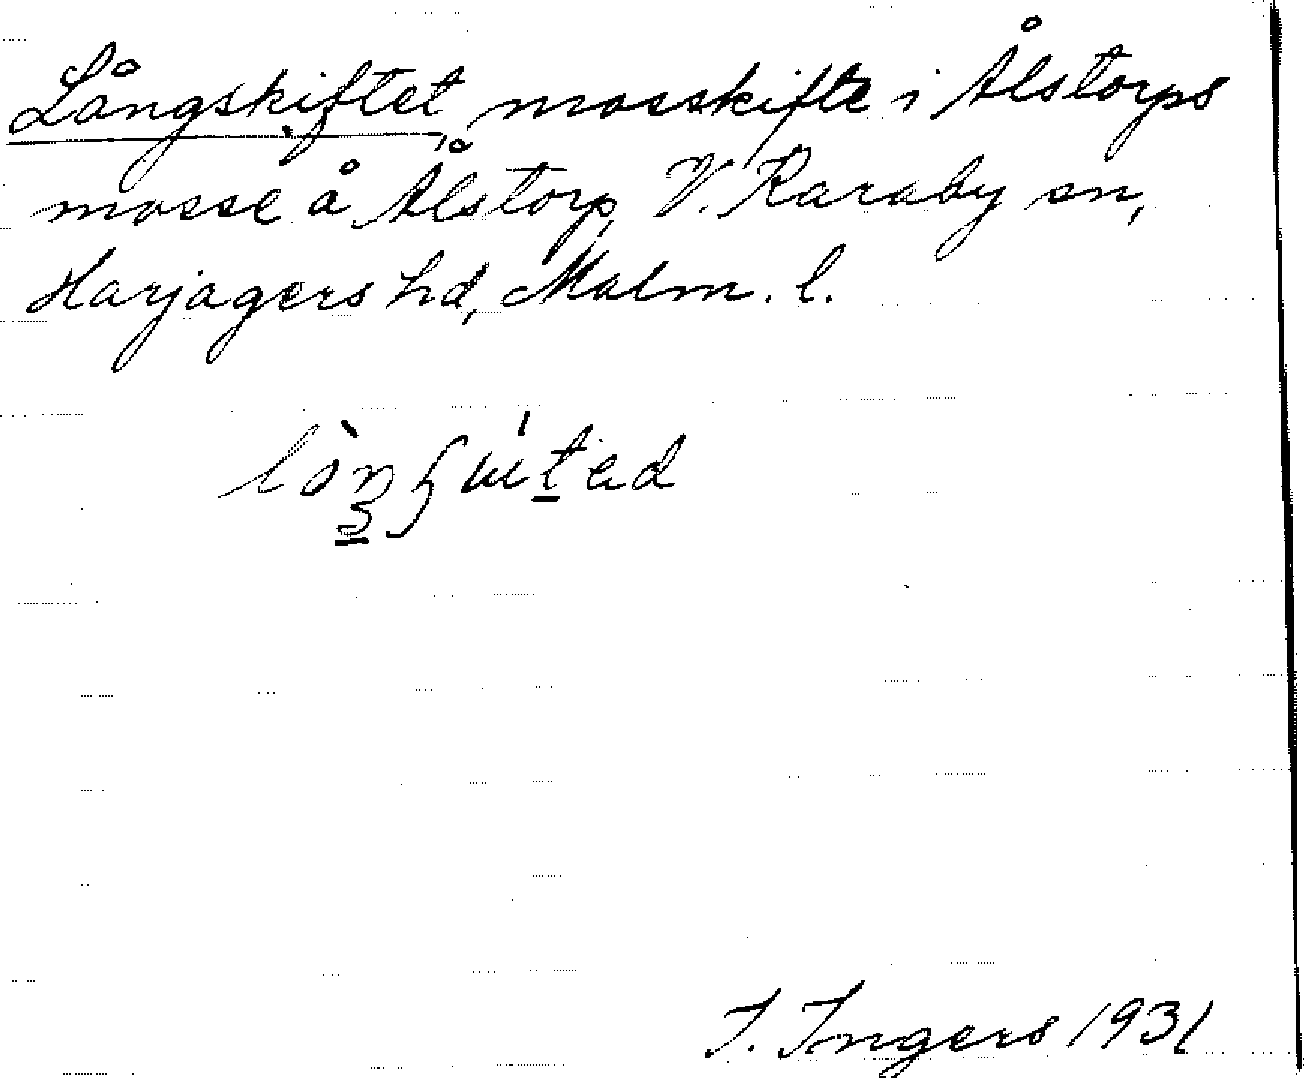 Långskiftet, mosskifte i Ålstorps
mosse å Ålstorp, V. Karaby sn,
Harjagers hd, Malm. l.
I. Ingers 1931